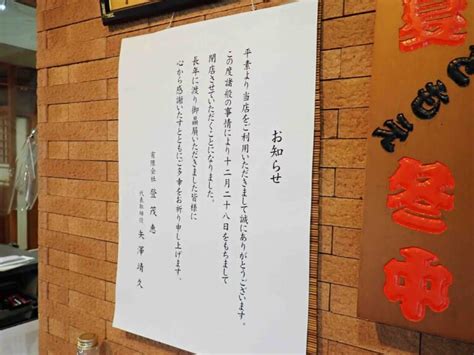 お知らせ
平素より当店をご利用いただきまして誠にありがとうございます。
この度諸般の事情により十二月二十八日をもちまして
閉店させていただくことになりました。
長年に渡り御贔屓いただきました皆様に
心から感謝いたすとともにご多幸をお祈り申し上げます。
有限会社 登茂恵
代表取締役 矢澤靖久